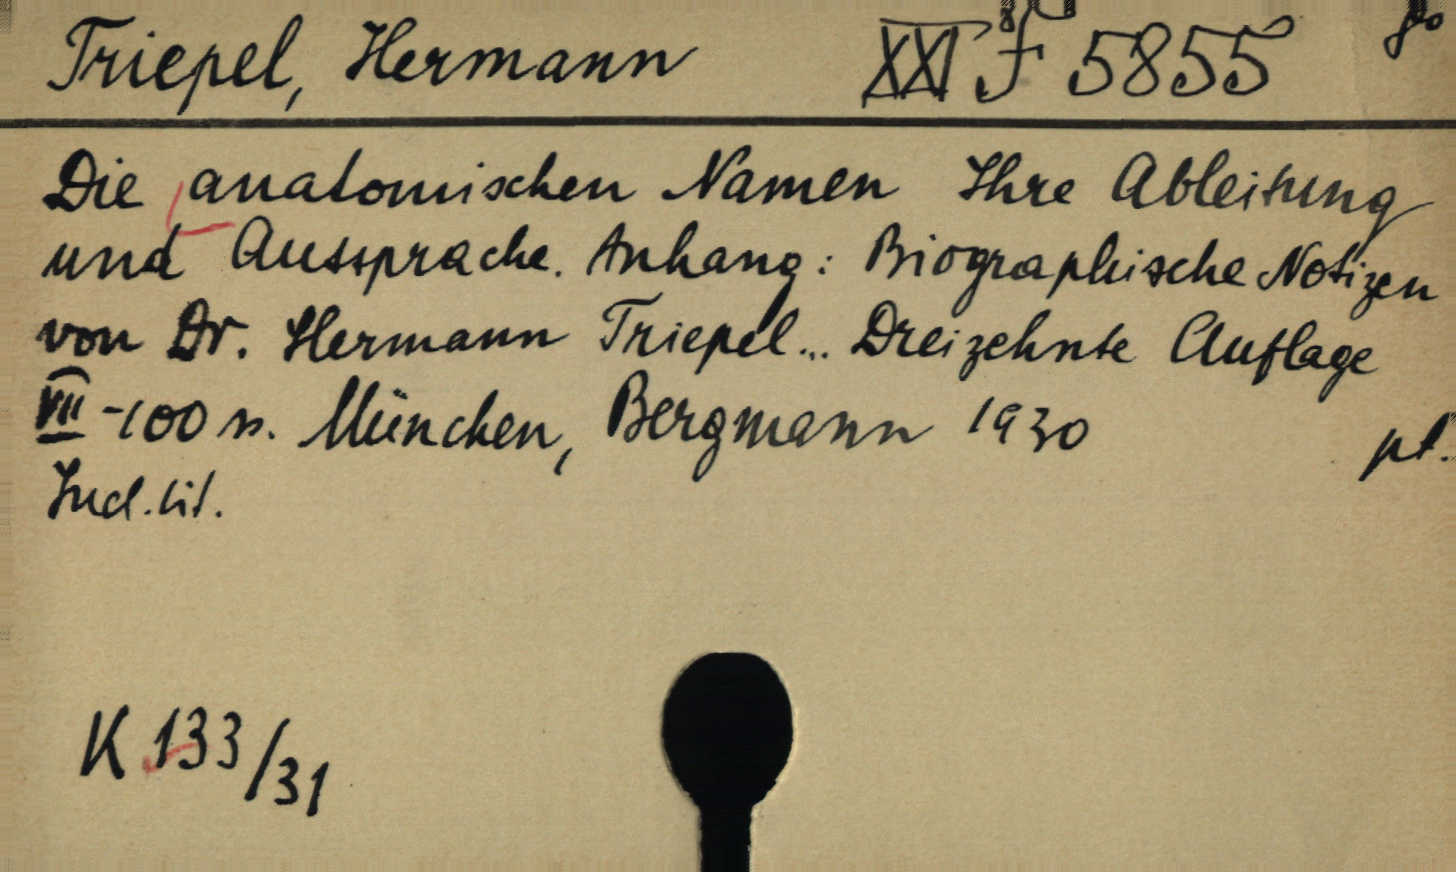 Triepel, Hermann XXI F 5855 8°
Die anatomischen Namen Ihre Ableitung
und Aussprache. Anhang: Biographische Notizen
von Dr. Hermann Triepel... Dreizehnte Auflage
VII -100 s. München, Bergmann 1930 pł.
Ind. lit.
K 133/31